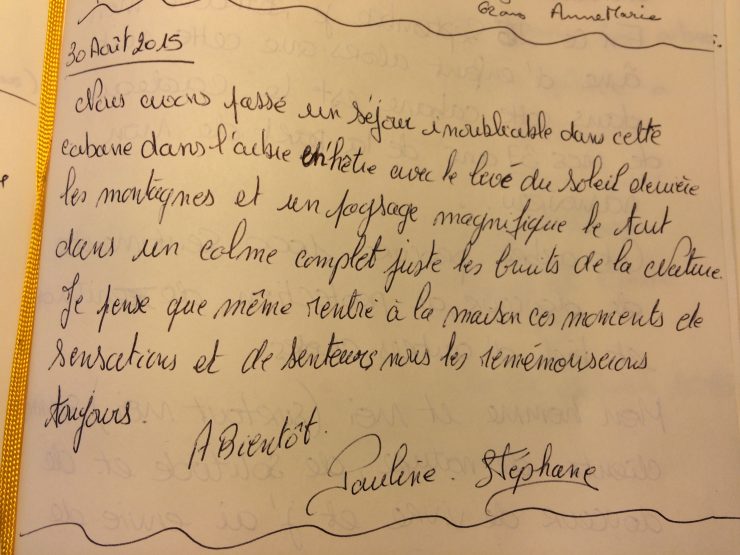 62 ans AnneMarie
30 Août 2015
Nous avons passé un séjour inoubliable dans cette
cabane dans l'arbre en'hêtre avec le levé du soleil derrière
les montagnes et un paysage magnifique le tout
dans un calme complet juste les bruits de la Nature.
Je pense que même rentré à la maison ces moments de
sensations et de senteurs nous les remémorserons
toujours.
A Bientôt.
Pauline. Stéphane